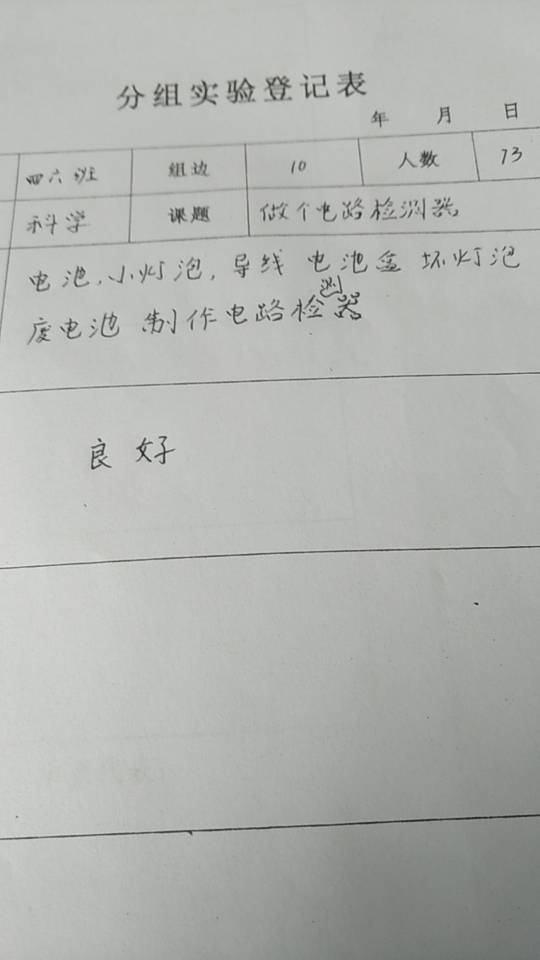 分组实验登记表
年 月 日
四六班 组边 10 人数 73
科学 课题 做个电路检测器
电池,小灯泡,导线 电池盒 坏灯泡
废电池 制作电路检测器
良好